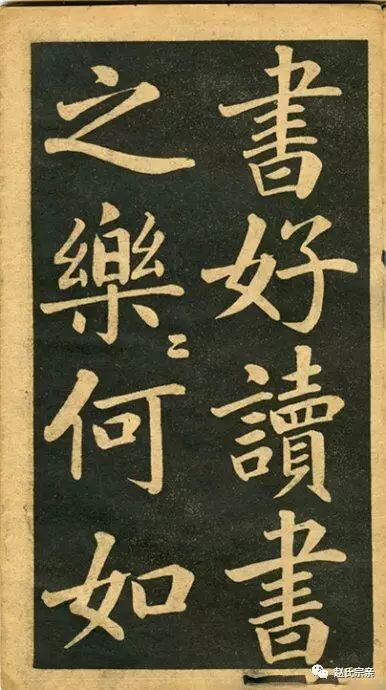 書好讀書
之樂〻何如
赵氏宗亲